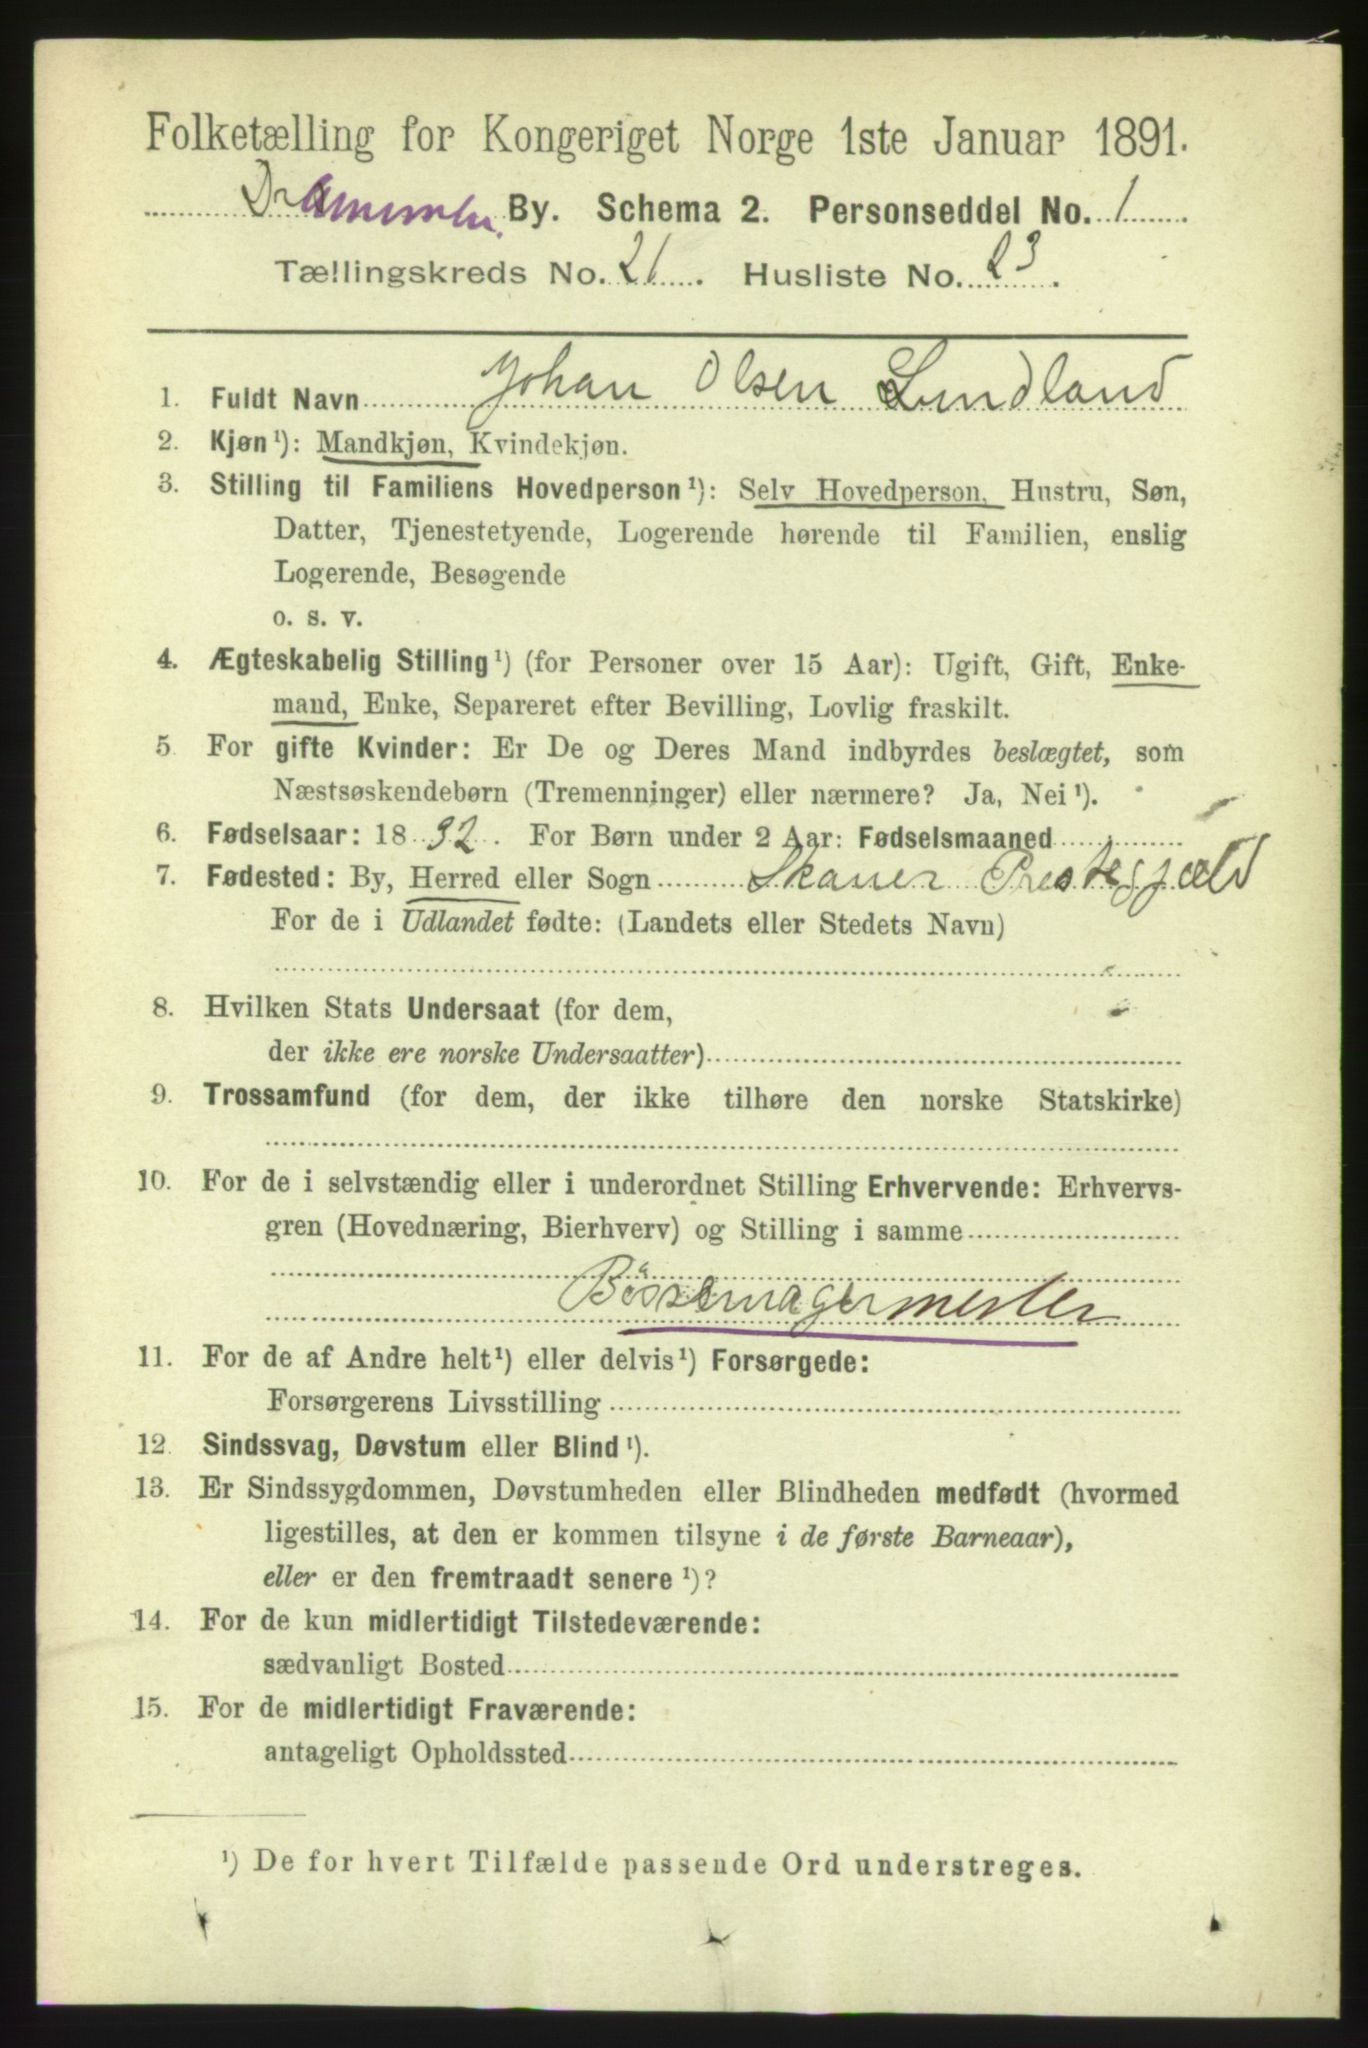 Folketælling for Kongeriget Norge 1ste Januar 1891.
Drammen By. Schema 2. Personseddel No. 1
Tællingskreds No. 21. Husliste No. 23.
1. Fuldt Navn Johan Olsen Lundland
2. Kjøn¹): Mandkjøn, Kvindekjøn.
3. Stilling til Familiens Hovedperson¹): Selv Hovedperson, Hustru, Søn,
Datter, Tjenestetyende, Logerende hørende til Familien, enslig
Logerende, Besøgende
o. s. v.
4. Ægteskabelig Stilling¹) (for Personer over 15 Aar): Ugift, Gift, Enke-
mand, Enke, Separeret efter Bevilling, Lovlig fraskilt.
5 For gifte Kvinder: Er De og Deres Mand indbyrdes beslægtet, som
Næstsøskendebørn (Tremenninger) eller nærmere? Ja, Nei¹).
6. Fødselsaar: 1832. For Børn under 2 Aar: Fødselsmaaned
7. Fødested: By, Herred eller Sogn Skauer Prestegjæld
For de i Udlandet fødte: (Landets eller Stedets Navn)
8. Hvilken Stats Undersaat (for dem,
der ikke ere norske Undersaatter)
9. Trossamfund (for dem, der ikke tilhøre den norske Statskirke)
10. For de i selvstændig eller i underordnet Stilling Erhvervende: Erhvervs-
gren (Hovednæring, Bierhverv) og Stilling i samme
Bössemagermester
11. For de af Andre helt¹) eller delvis¹) Forsørgede:
Forsørgerens Livsstilling
12. Sindssvag, Døvstum eller Blind¹).
13. Er Sindssygdommen, Døvstumheden eller Blindheden medfødt (hvormed
ligestilles, at den er kommen tilsyne i de første Barneaar),
eller er den fremtraadt senere¹)?
14. For de kun midlertidigt Tilstedeværende:
sædvanligt Bosted
15. For de midlertidigt Fraværende:
antageligt Opholdssted
¹) De for hvert Tilfælde passende Ord understreges.